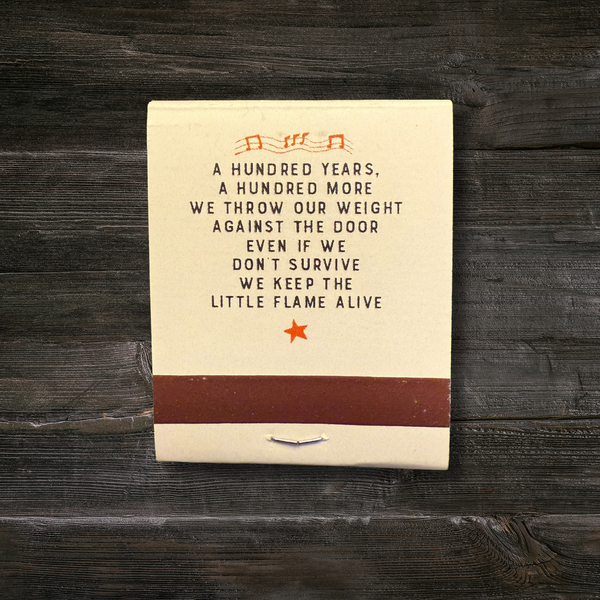 A HUNDRED YEARS,
A HUNDRED MORE
WE THROW OUR WEIGHT
AGAINST THE DOOR
EVEN IF WE
DON'T SURVIVE
WE KEEP THE
LITTLE FLAME ALIVE